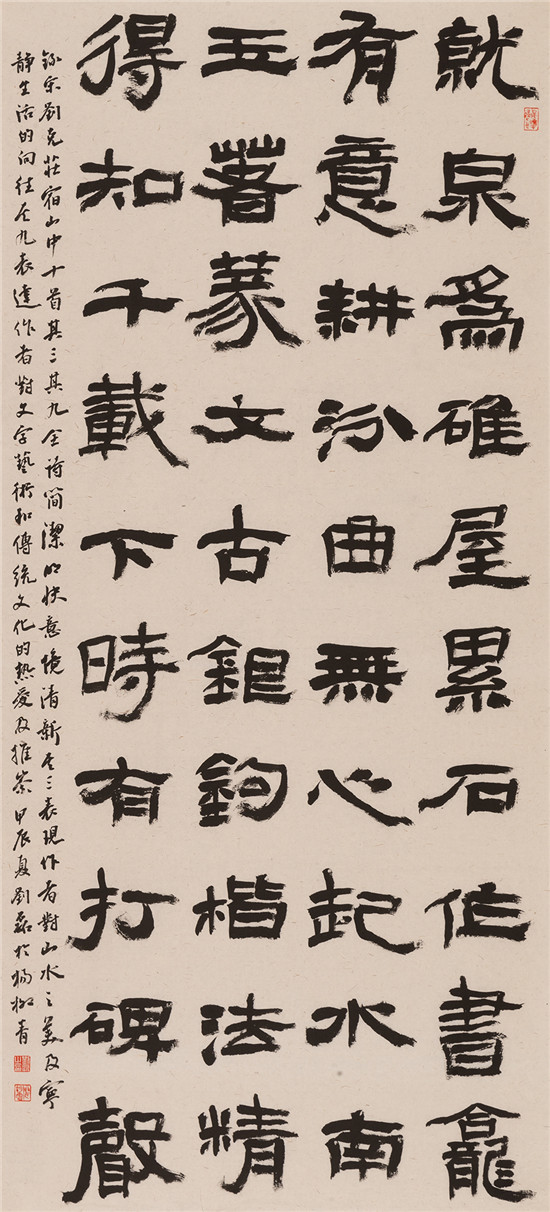 就泉為碓屋累石作書龕
有意耕汾曲無心起水南
玉箸篆文古銀鉤楷法精
得知千載下時有打碑聲
錄宋劉克莊宿山中十首其三其九全詩簡潔明快意境清新其三表現作者對山水之美及寧
靜生活的向往其九表達作者對文字藝術和傳統文化的熱愛及推崇甲辰夏劉磊於楊柳青